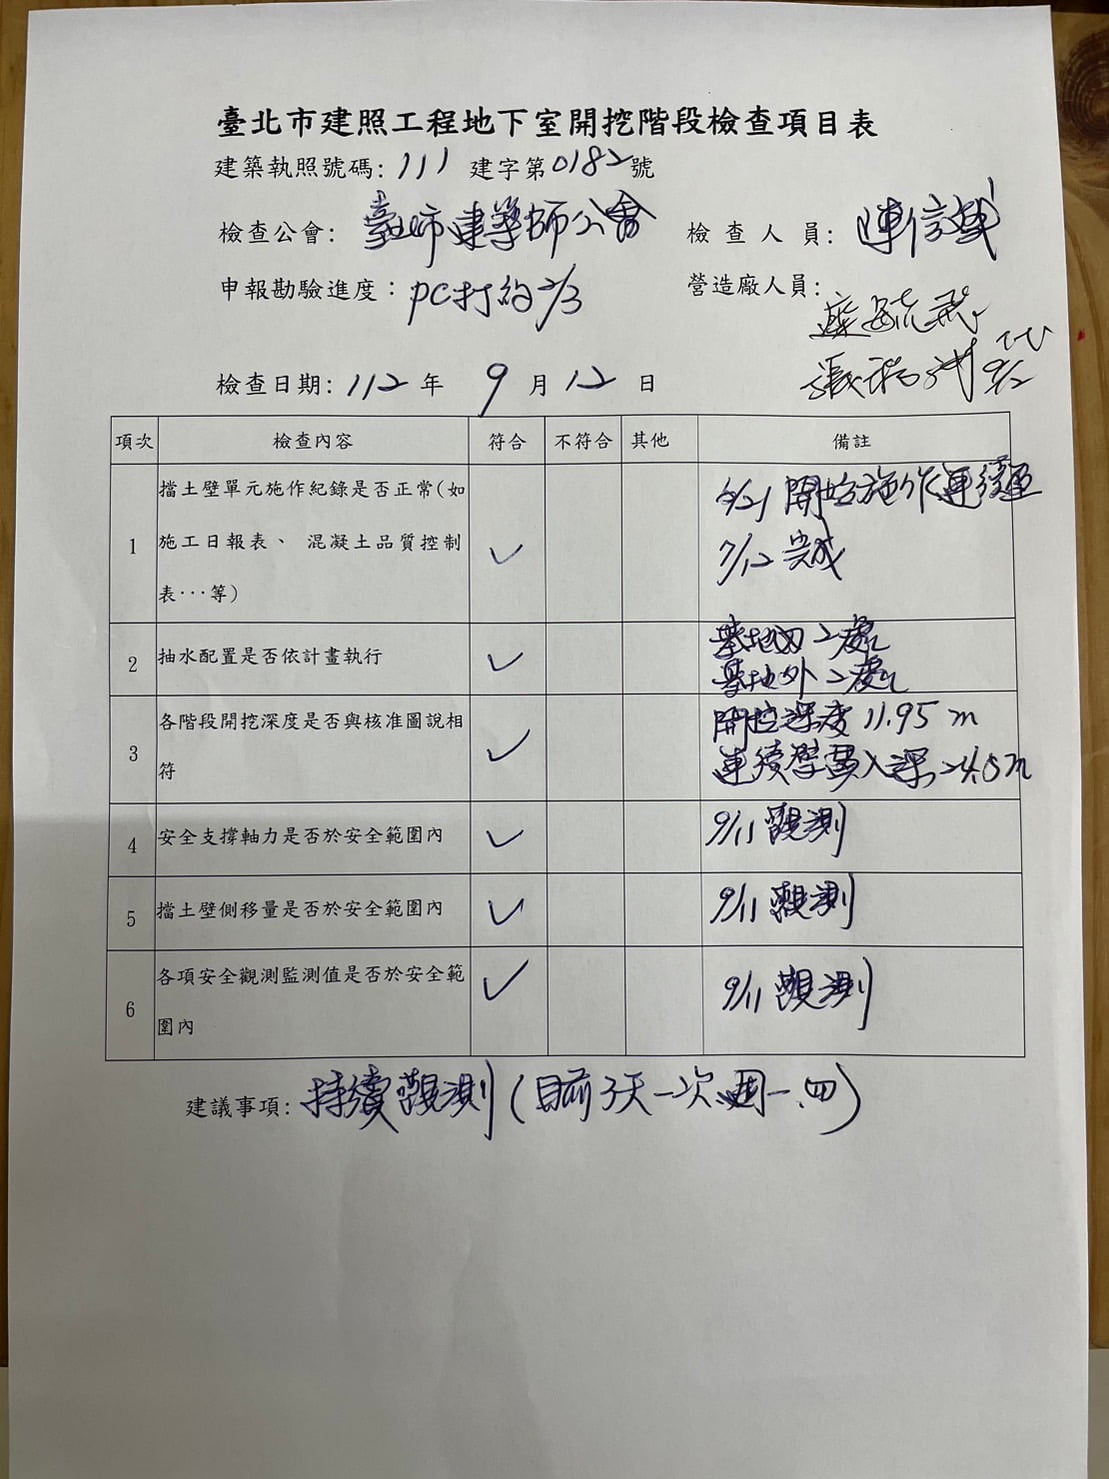 臺北市建照工程地下室開挖階段檢查項目表
建築執照號碼: 111 建字第0182號
檢查公會: 臺北市建築師公會 檢查人員: 連信
申報勘驗進度: PC打約2/3 營造廠人員:
檢查日期: 112年 9月12日
項次 檢查內容 符合 不符合 其他 備註
1 擋土壁單元施作紀錄是否正常(如
施工日報表、 混凝土品質控制
表···等) ✓
/21 開始施作連續壁
7/12 完成
2 抽水配置是否依計畫執行 ✓
基地內2處
基地外2處
3 各階段開挖深度是否與核准圖說相
符 ✓
開挖深度 11.95m
連續壁貫入深 24.0m
4 安全支撐軸力是否於安全範圍內 ✓ 9/11 觀測
5 擋土壁側移量是否於安全範圍內 ✓ 9/11 觀測
6 各項安全觀測監測值是否於安全範
圍內 ✓ 9/11 觀測
建議事項: 持續觀測(目前3天一次週一、四)